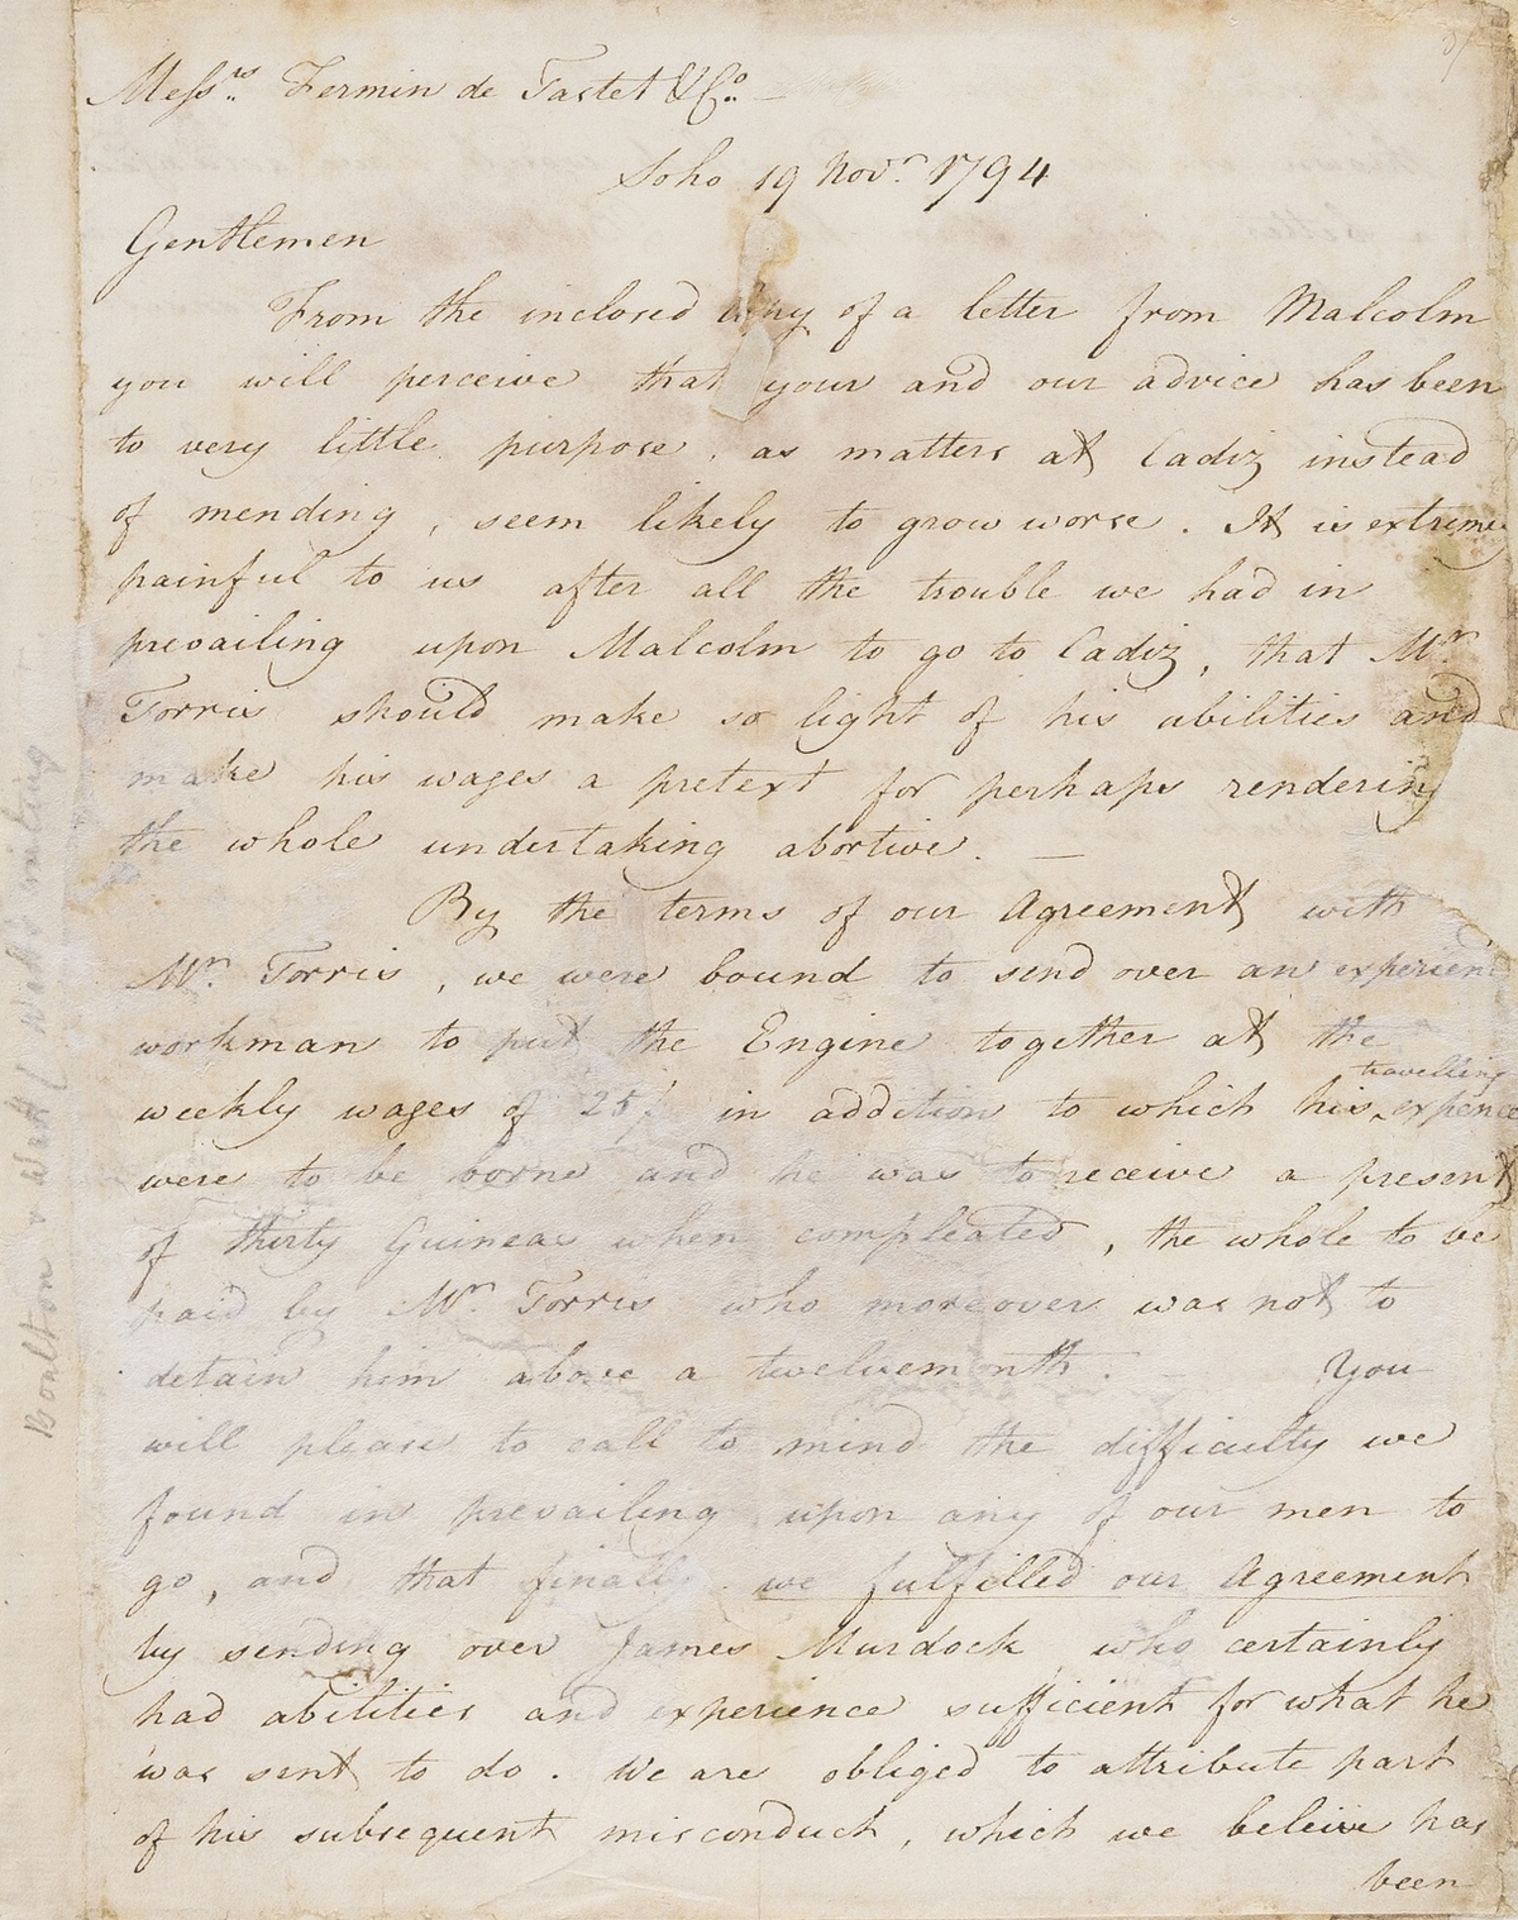 Messrs. Fermin de Tastet & Co.
Soho 19 Novr. 1794
Gentlemen
From the inclosed Copy of a letter from Malcolm
you will perceive that your and our advice has been
to very little purpose, as matters at Cadiz instead
of mending, seem likely to grow worse. It is extremely
painful to us after all the trouble we had in
prevailing upon Malcolm to go to Cadiz, that Mr.
Torris should make so light of his abilities and
make his wages a pretext for perhaps rendering
the whole undertaking abortive. —
By the terms of our Agreement with
Mr. Torris, we were bound to send over an experienc'd
workman to put the Engine together at the
weekly wages of 25/ in addition to which his travelling expences
were to be borne and he was to receive a present
of thirty Guineas when compleated, the whole to be
paid by Mr. Torris who moreover was not to
detain him above a twelvemonth. — You
will please to call to mind the difficulty we
found in prevailing upon any of our men to
go, and that finally we fulfilled our Agreement
by sending over James Murdock who certainly
had abilities and experience sufficient for what he
was sent to do. We are obliged to attribute part
of his subsequent misconduct, which we beleive has
been
Boulton & Watt